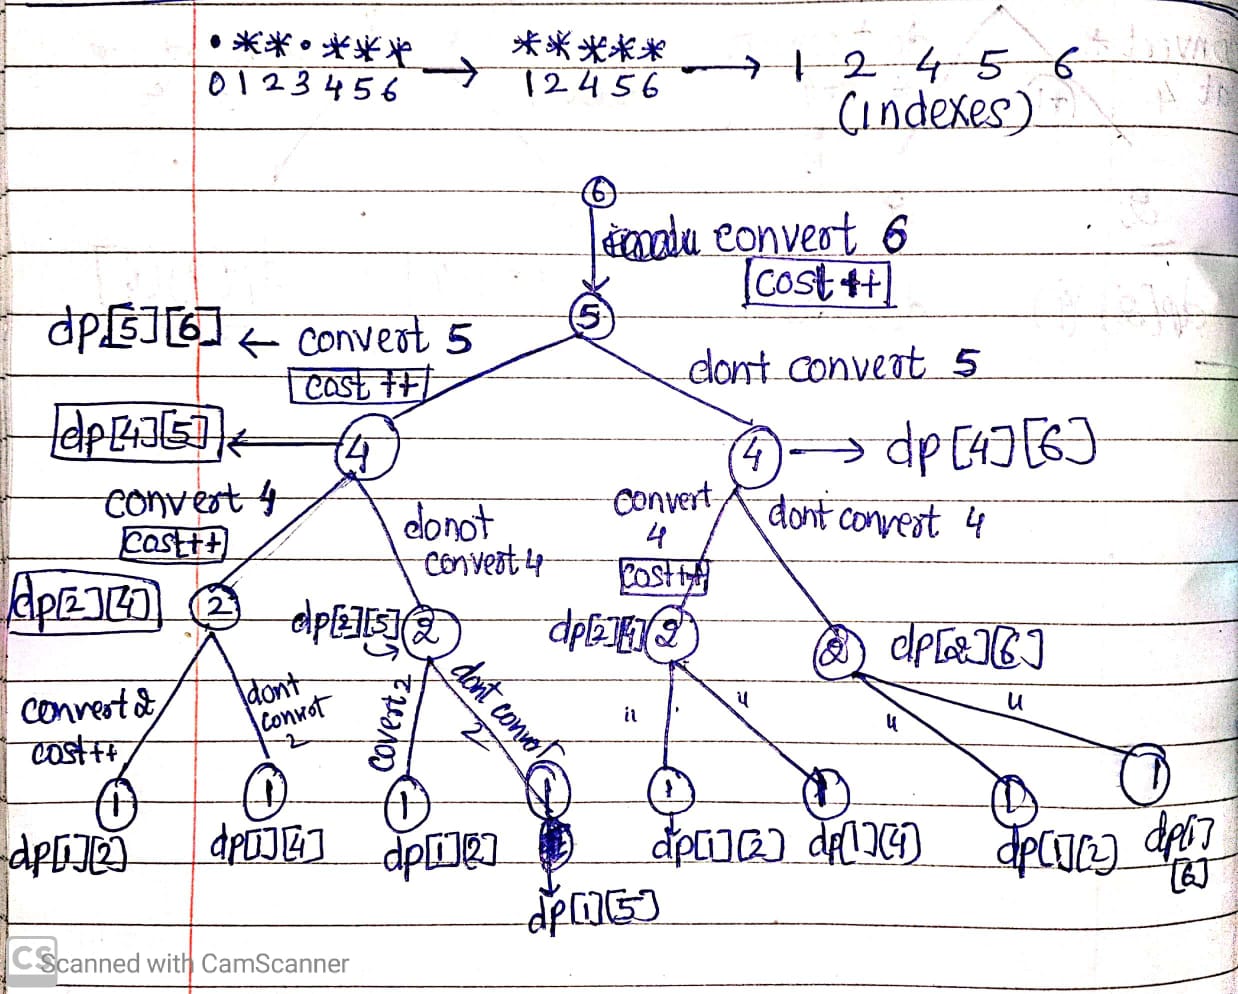 •**•*** → ***** → 1 2 4 5 6
0123456 12456 (indexes)
6
convert 6
cost ++
5
dp[5][6] ← convert 5
cost ++
dont convert 5
dp[4][5] ← 4
4 → dp[4][6]
convert 4
cost++
donot
convert 4
convert
4
cost ++
dont convert 4
dp[2][4] 2
dp[2][5] 2
dp[2][4] 2
2 dp[2][6]
convert 2
cost++
dont
convrt
2
covert 2
dont convrt
2
u
u
u
1 1 1 1 1 1 1 1
dp[1][2] dp[1][4] dp[1][2] dp[1][2] dp[1][4] dp[1][2] dp[1]
[6]
dp[1][5]
CS Scanned with CamScanner